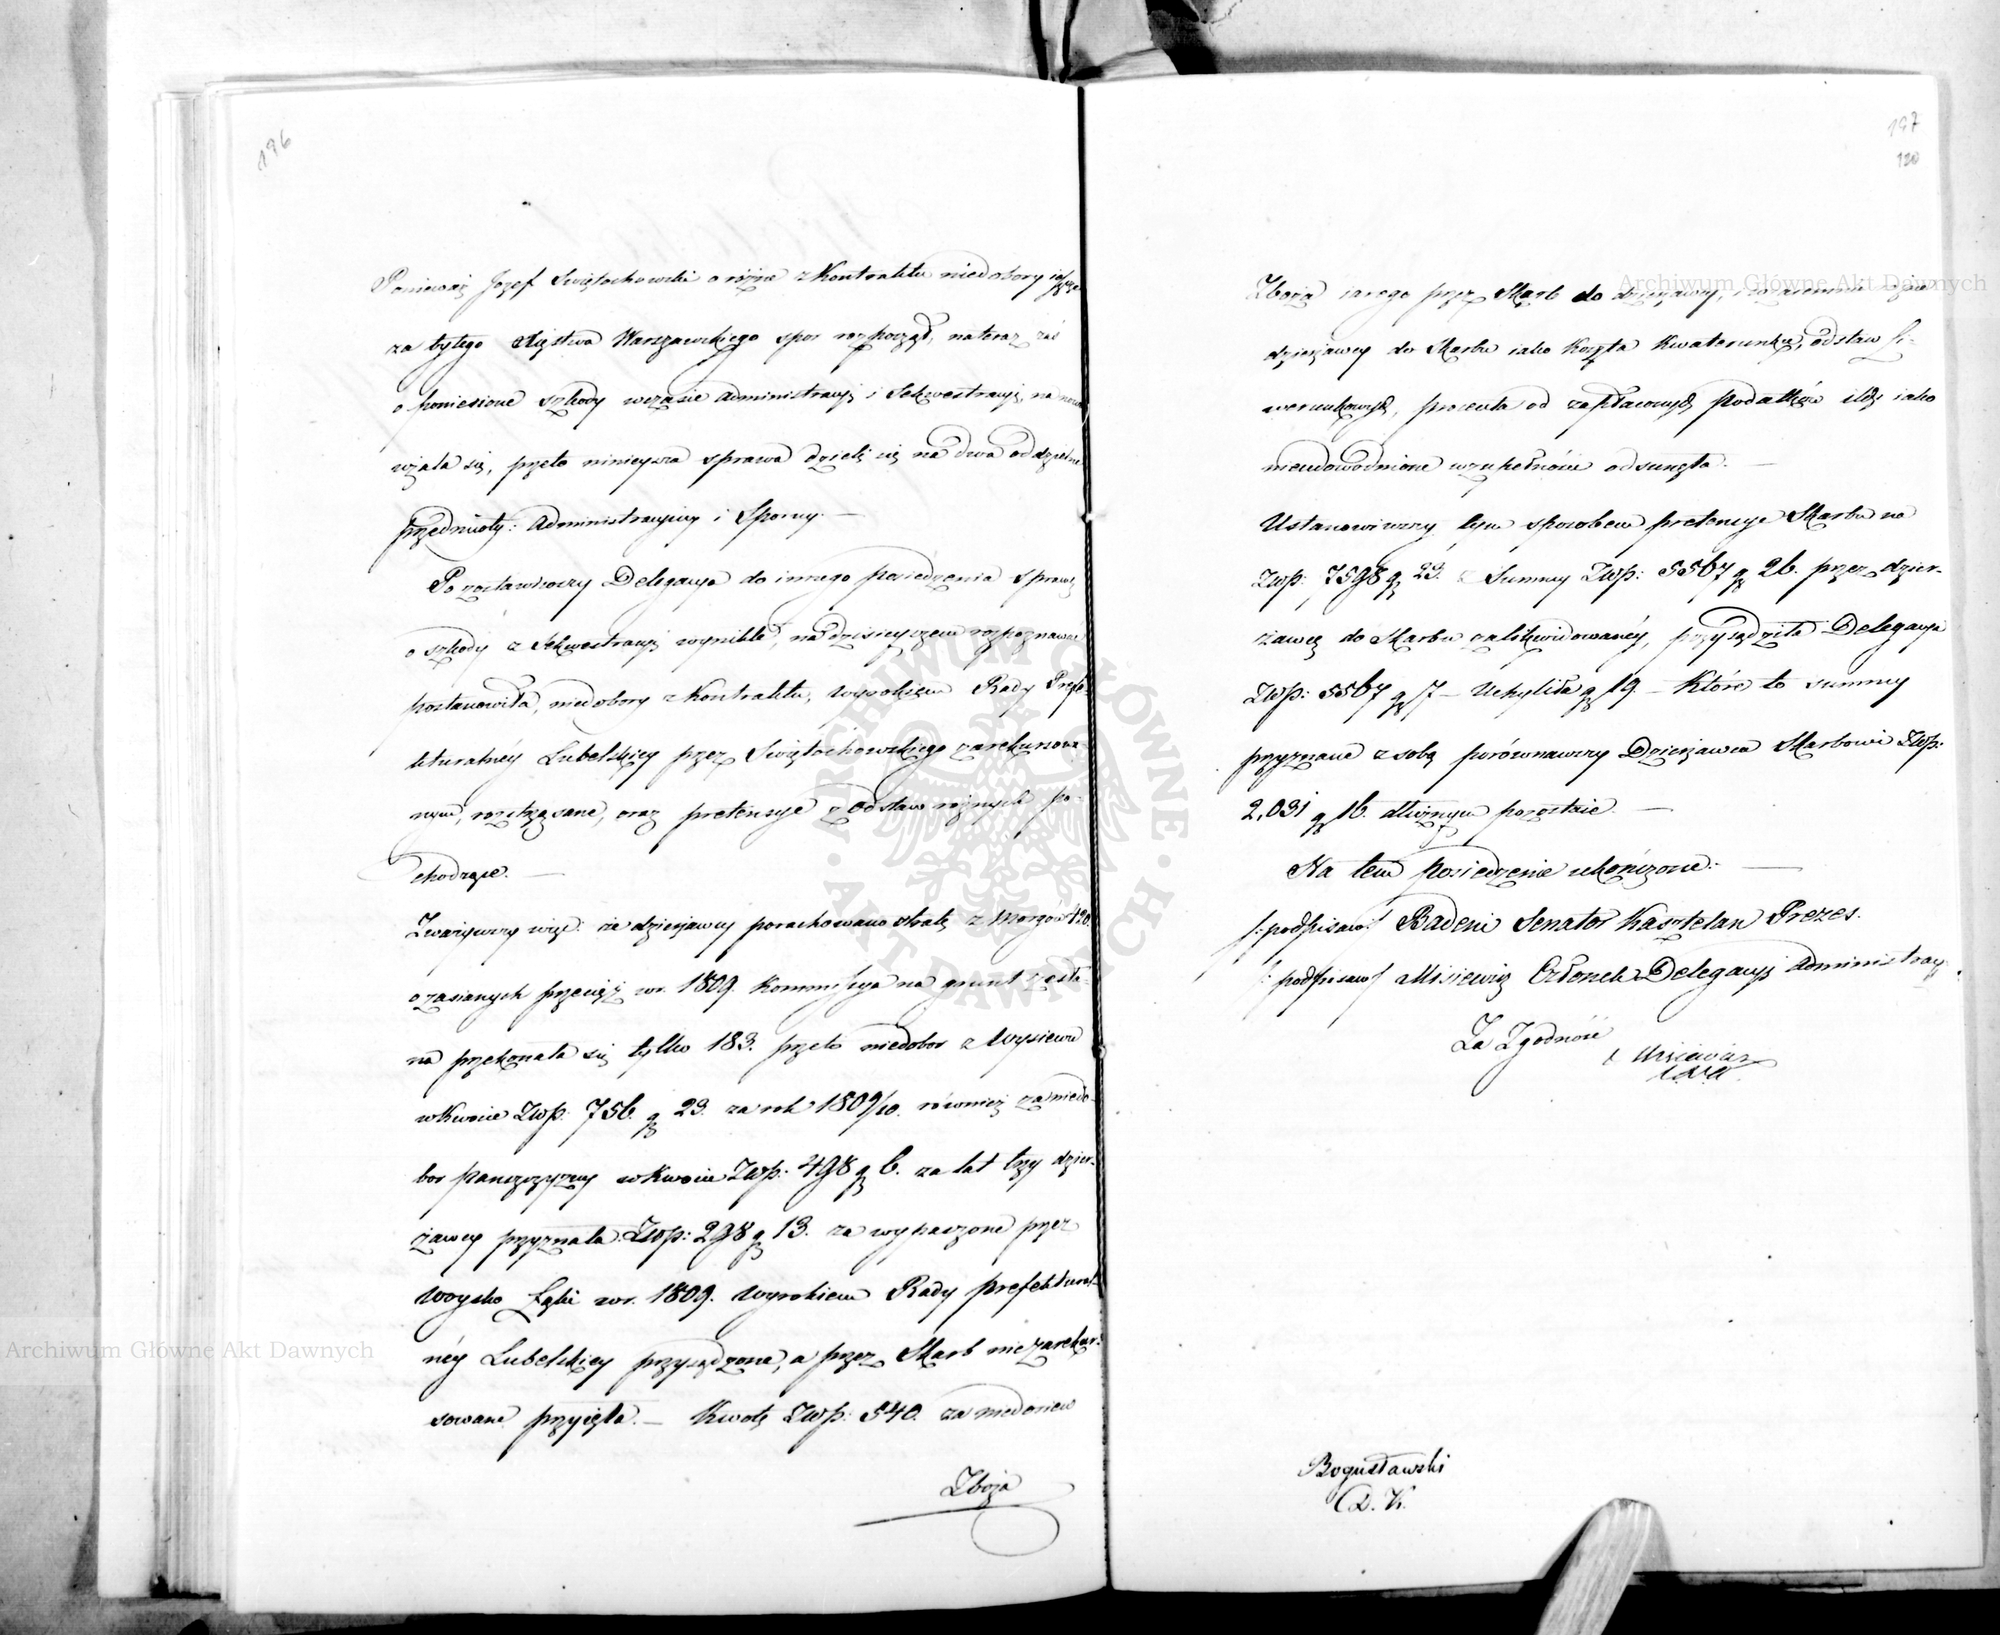 196
Ponieważ Jozef Swiętochowski o różne z Kontraktu niedobory
za byłego Xięstwa Warszawskiego spor rozpoczął, na teraz zaś
o poniesione szkody wczasie administracyi i Sekwestracyi, na nowo
wziała się, przeto ninieysza sprawa dzieli się na dwa oddzielne
przedmioty: administracyiny i Sporny. —
Pozostawiwszy Delegacya do innego posiedzenia sprawę
o szkody z Sekwestracyi wynikłe, na dzisieyszem rozpoznawać
postanowiła, niedobory z Kontraktu, wyrokiem Rady Prefe-
kturalnéy Lubelskiey przez Swiętochowskiego zarekursowa-
nym, roztrząsane, oraz pretensye z odstaw rożnych po-
chodzące. —
Zważywszy więc: że dzierżawcy porachowano stratę z Morgów 420
ozasianych przecięż w r. 1809. Kommissya na grunt zesła-
na przekonała się tylko 183. przeto niedobor z Wysiewu
w Kwocie Złp: 756. gr 23. za rok 1809/10. również za niedo-
bor Panszczyzny w Kwocie Złp: 498 gr 6. za lat trzy dzier-
żawcy przyznała. Złp: 298 gr 13. za wypaszone przez
Woysko Łąki w r. 1809. Wyrokiem Rady Prefektural-
néy Lubelskiey przysądzone, a przez Skarb nie zarekur-
sowane przyięła. — Kwotę Złp: 540. za niedosiew
Zboża
197
120
Zboża iarego przez Skarb do dzierżawy,
dzierżawcy do Skarbu iako Koszta Kwaterunku, odstaw Li-
werunkowych, procenta od zapłaconych Podatków itd: iako
nieudowodnione wzupełności odsunęła. —
Ustanowiwszy tym sposobem pretensye Skarbu na
Złp: 7598 gr 23. z Summy Złp: 5567 gr 26. przez dzier-
żawcę do Skarbu zalikwidowanéy, przysądziła Delegacya
Złp: 5567 gr 7 — Uchyliła gr 19. — Które to summy
przyznane z sobą porównawszy Dzierżawca Skarbowi Złp:
2,031 gr 16. dłużnym pozostaie. —
Na tem posiedzenie ukończone. —
/: podpisano/ Badeni Senator Kasztelan Prezes.
/: podpisano/ Misiewicz Członek Delegacyi Administracyi
Za Zgodność
Misiewicz
Bogusławski
A. K.
Archiwum Główne Akt Dawnych
Archiwum Główne Akt Dawnych
ARCHIWUM GŁÓWNE · AKT DAWNYCH ·